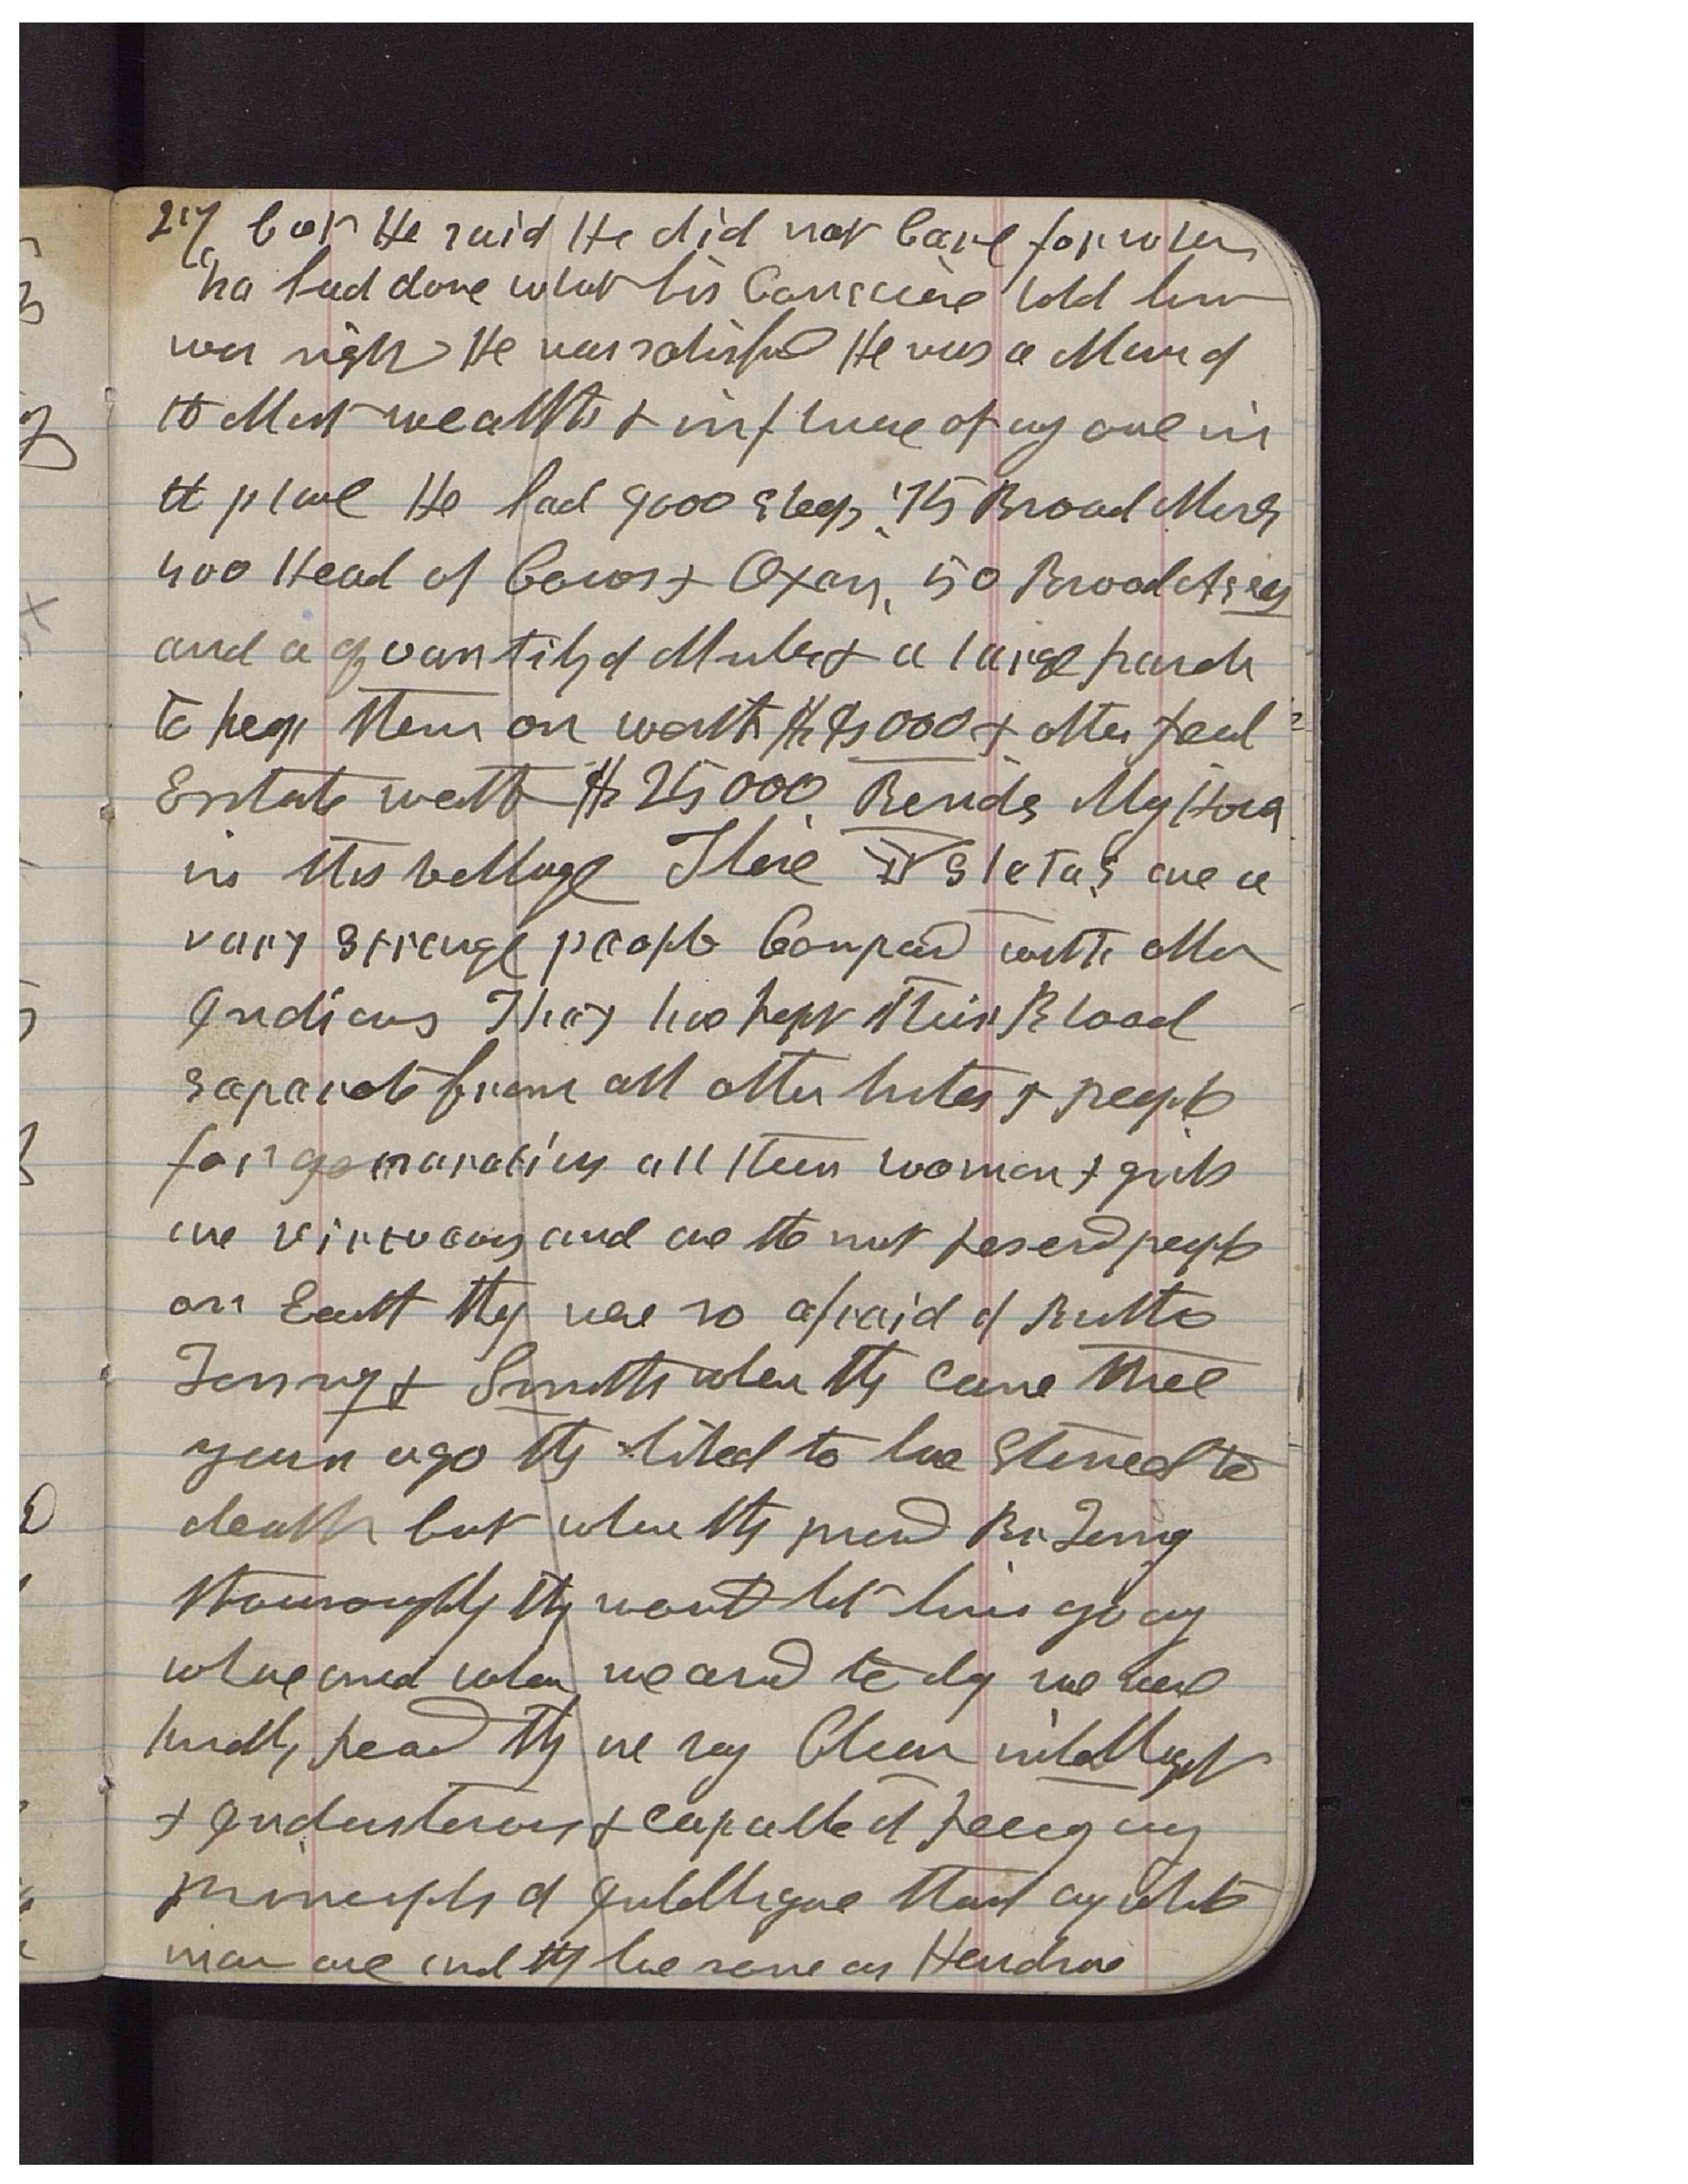 217 but He said He did not Care for when
he had done what his Conscience told him
was right He was satisfied He was a Man of
the Most wealth & influence of any one in
the place He had 9000 sheep, 75 Brood Mares
400 Head of Cows & Oxen, 50 Brood Asses
and a quantity of Mules & a large ranch
to keep them on worth $ 000 & other real
Estate worth $ 25000, Beside My Home
in this village These Isletas are a
vary strange people Compared with other
Indians They have kept their Blood
separate from all other tribes & people
for genarations all their woman & girls
are virtuous and are the most reserved people
on Earth they were so afraid of Brother
Tenney & Smith when they came three
years ago they liked to have Starved to
death but when they proved Br Tenney
thouroughly they would let him go any
whare and when we arived to day we were
kindly recd they are very Clean intelligent
& Industerous & capable of recieving any
principle of Intelligence that any white
man are and they have some as Handsome